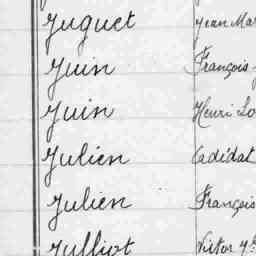 Juguet Jean Mar
Juin François
Juin Henri Lo
Julien Cadidat
Julien François
Julliot Victor